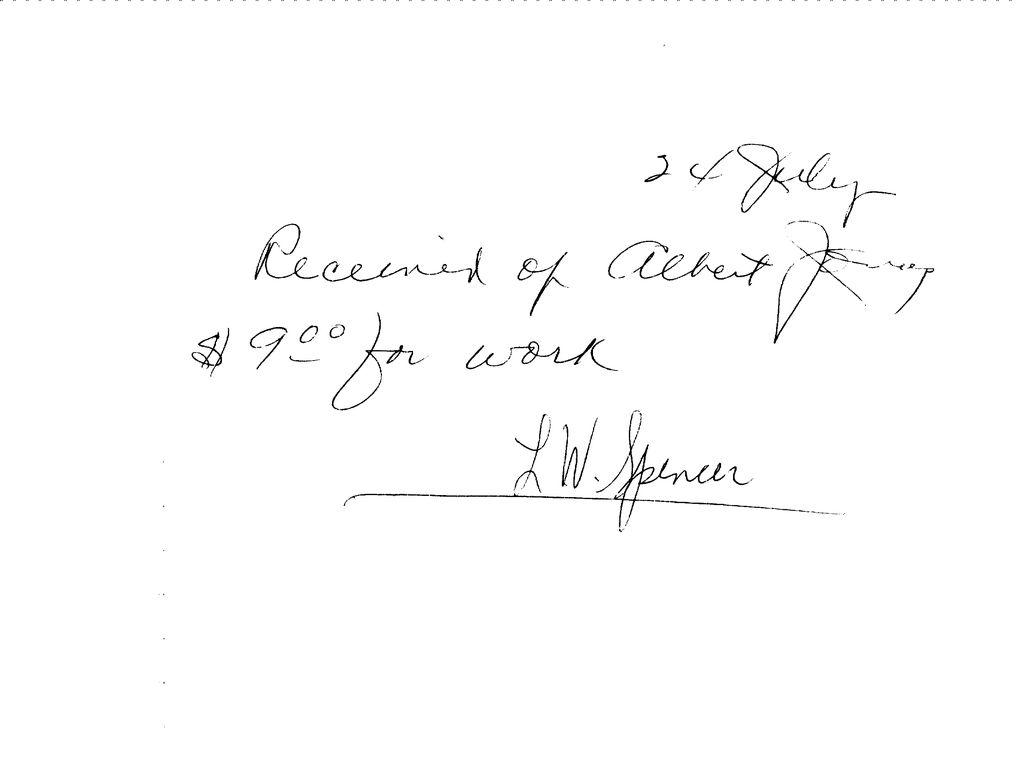 24 July
Received of Albert Jones
$9.00 for work
L W. Spencer